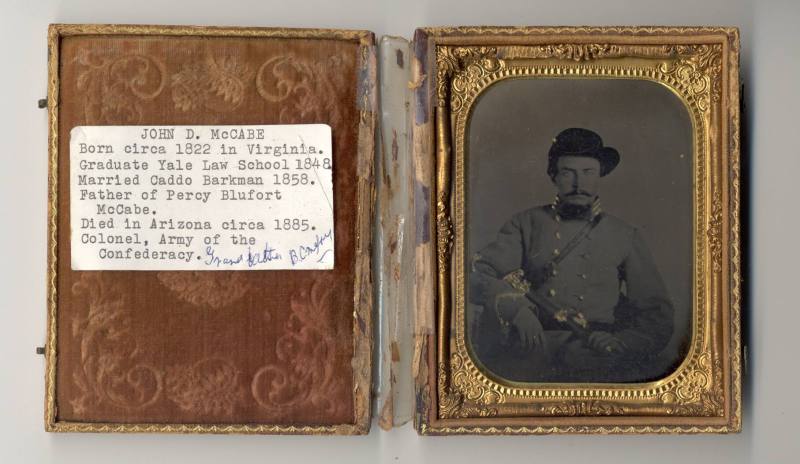 JOHN D. McCABE
Born circa 1822 in Virginia.
Graduate Yale Law School 1848
Married Caddo Barkman 1858.
Father of Percy Blufort
McCabe.
Died in Arizona circa 1885.
Colonel, Army of the
Confederacy. Grand father